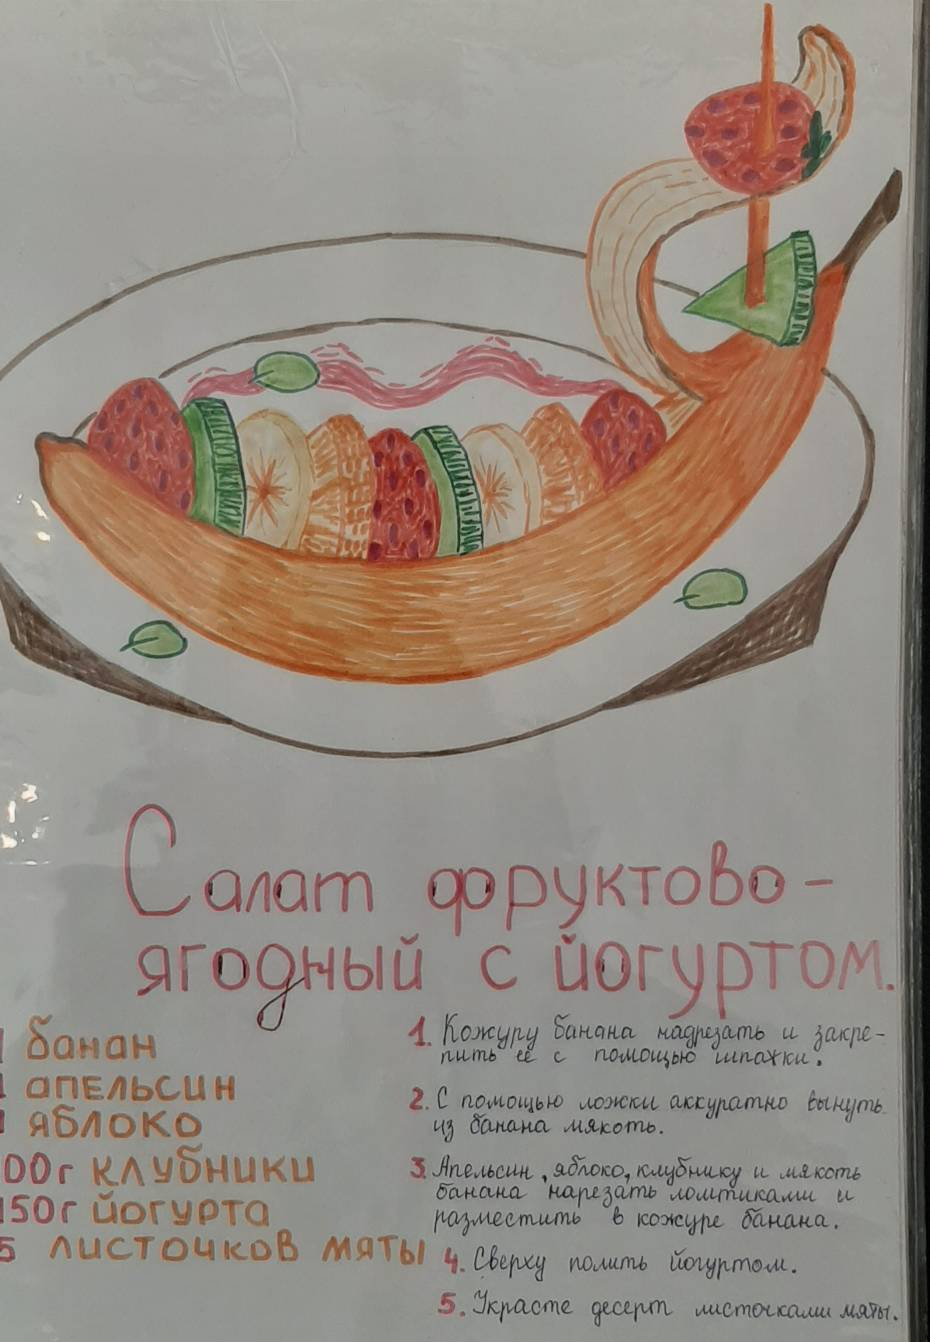 Салат фруктово-
ягодный с йогуртом.
1 банан
1 апельсин
1 яблоко
00г клубники
150г йогурта
5 листочков мяты
1. Кожуру банана надрезать и закре-
пить её с помощью шпажки.
2. С помощью ложки аккуратно вынуть
из банана мякоть.
3. Апельсин, яблоко, клубнику и мякоть
банана нарезать ломтиками и
разместить в кожуре банана.
4. Сверху полить йогуртом.
5. Украсте десерт листочками мяты.